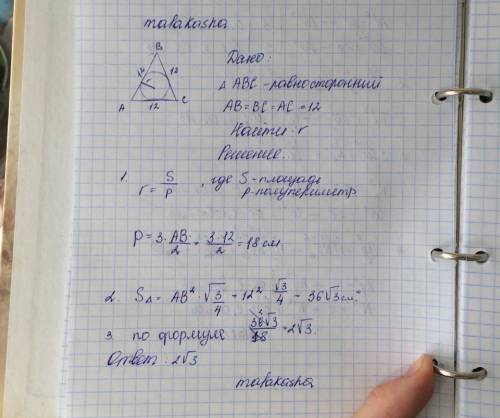 malakasha
B
Дано:
12 12
r
Δ ABC - равносторонний
A 12 C
AB = BC = AC = 12
Найти: r
Решение:
1. r = S/p, где S - площадь
p - полупериметр
p = 3·AB/2 = 3·12/2 = 18 см.
2. SΔ = AB² · √3/4 = 12² · √3/4 = 36√3 см²
3. по формуле 36√3/18 = 2√3
2
Ответ: 2√3
malakasha